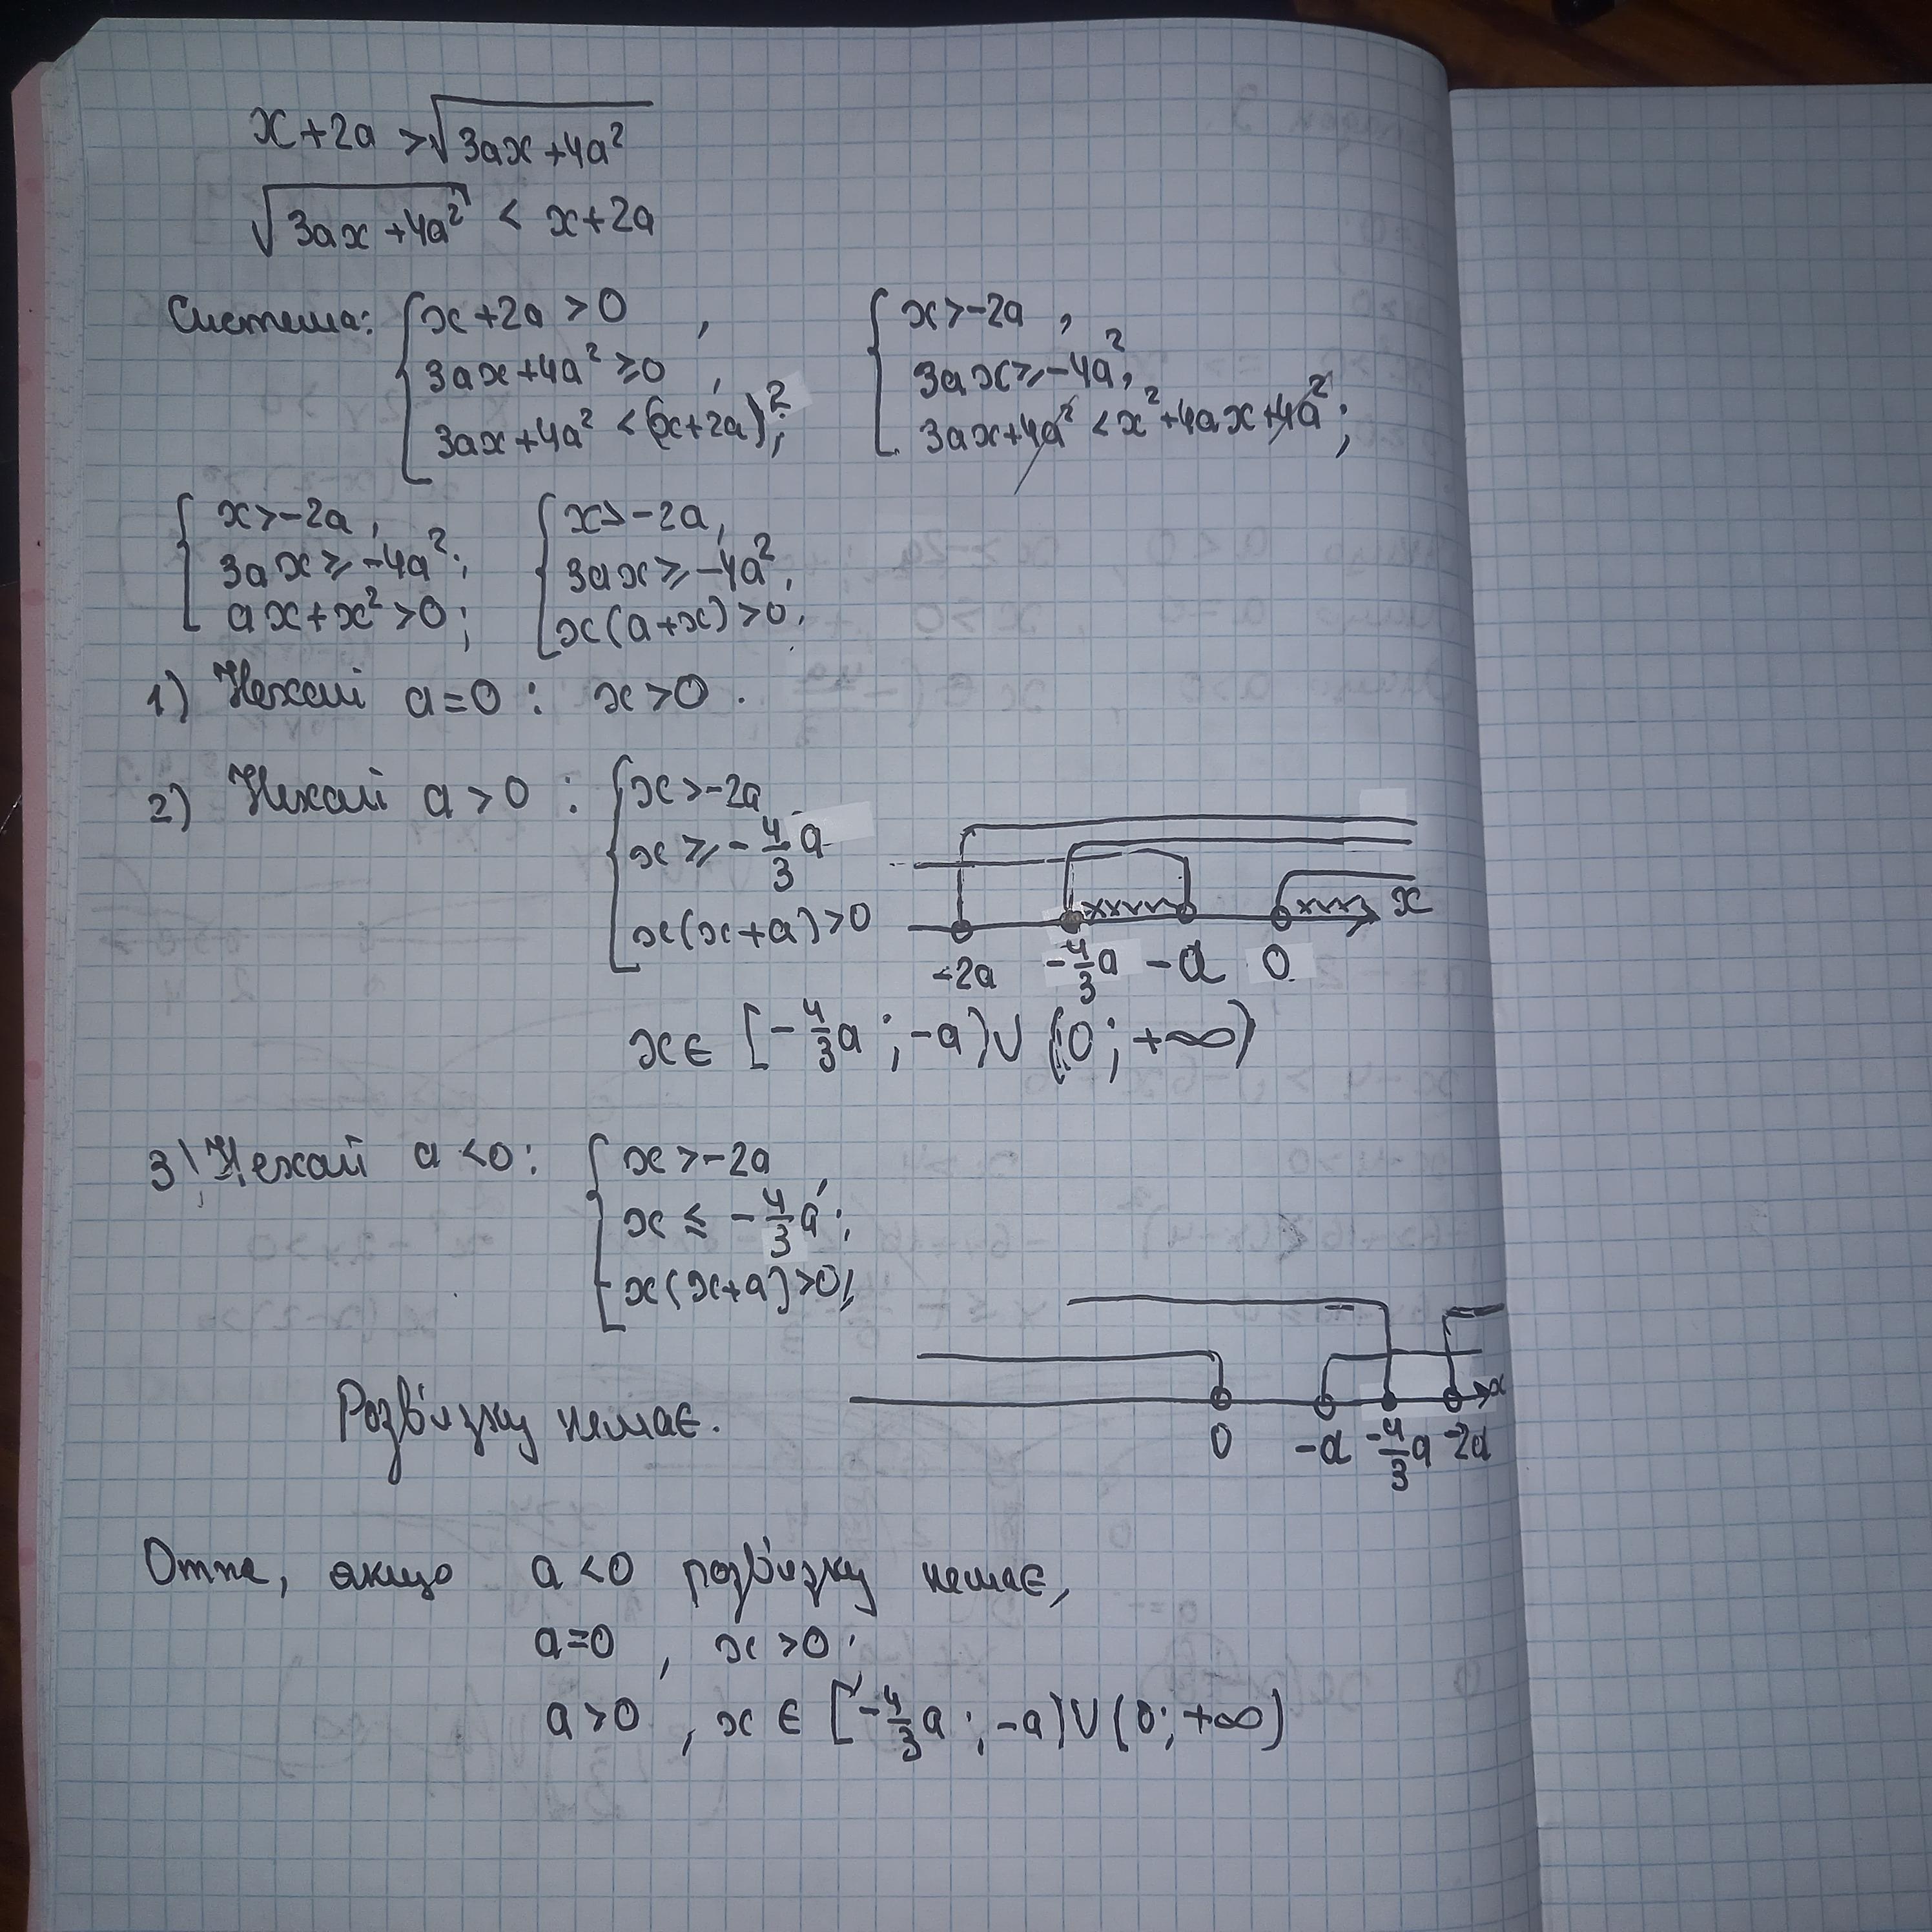 x+2a > √(3ax+4a²)
√(3ax+4a²) < x+2a
Система: { x+2a>0, 3ax+4a²≥0, 3ax+4a²<(x+2a)²; { x>-2a, 3ax≥-4a², 3ax+4a²<x²+4ax+4a²;
{ x>-2a, 3ax≥-4a²; ax+x²>0; { x>-2a, 3ax≥-4a², x(a+x)>0.
1) Нехай a=0 : x>0.
2) Нехай a>0 : { x>-2a x≥-4/3a x(x+a)>0
x
-2a -4/3a -a 0
x∈ [-4/3a; -a)∪(0; +∞)
3) Нехай a<0: { x>-2a, x≤-4/3a; x(x+a)>0;
x
0 -a -4/3a -2a
Розв'язку немає.
Отже, якщо a<0 розв'язку немає,
a=0, x>0;
a>0, x∈[-4/3a; -a)∪(0; +∞)